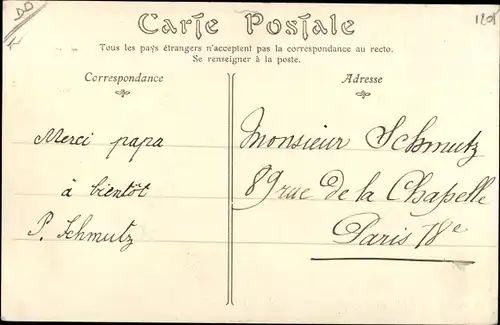 Carte Postale
Tous les pays étrangers n'acceptent pas la correspondance au recto.
Se renseigner à la poste.
Correspondance
Adresse
Merci papa
à bientôt
P. Schmutz
Monsieur Schmutz
89 rue de la Chapelle
Paris 18e